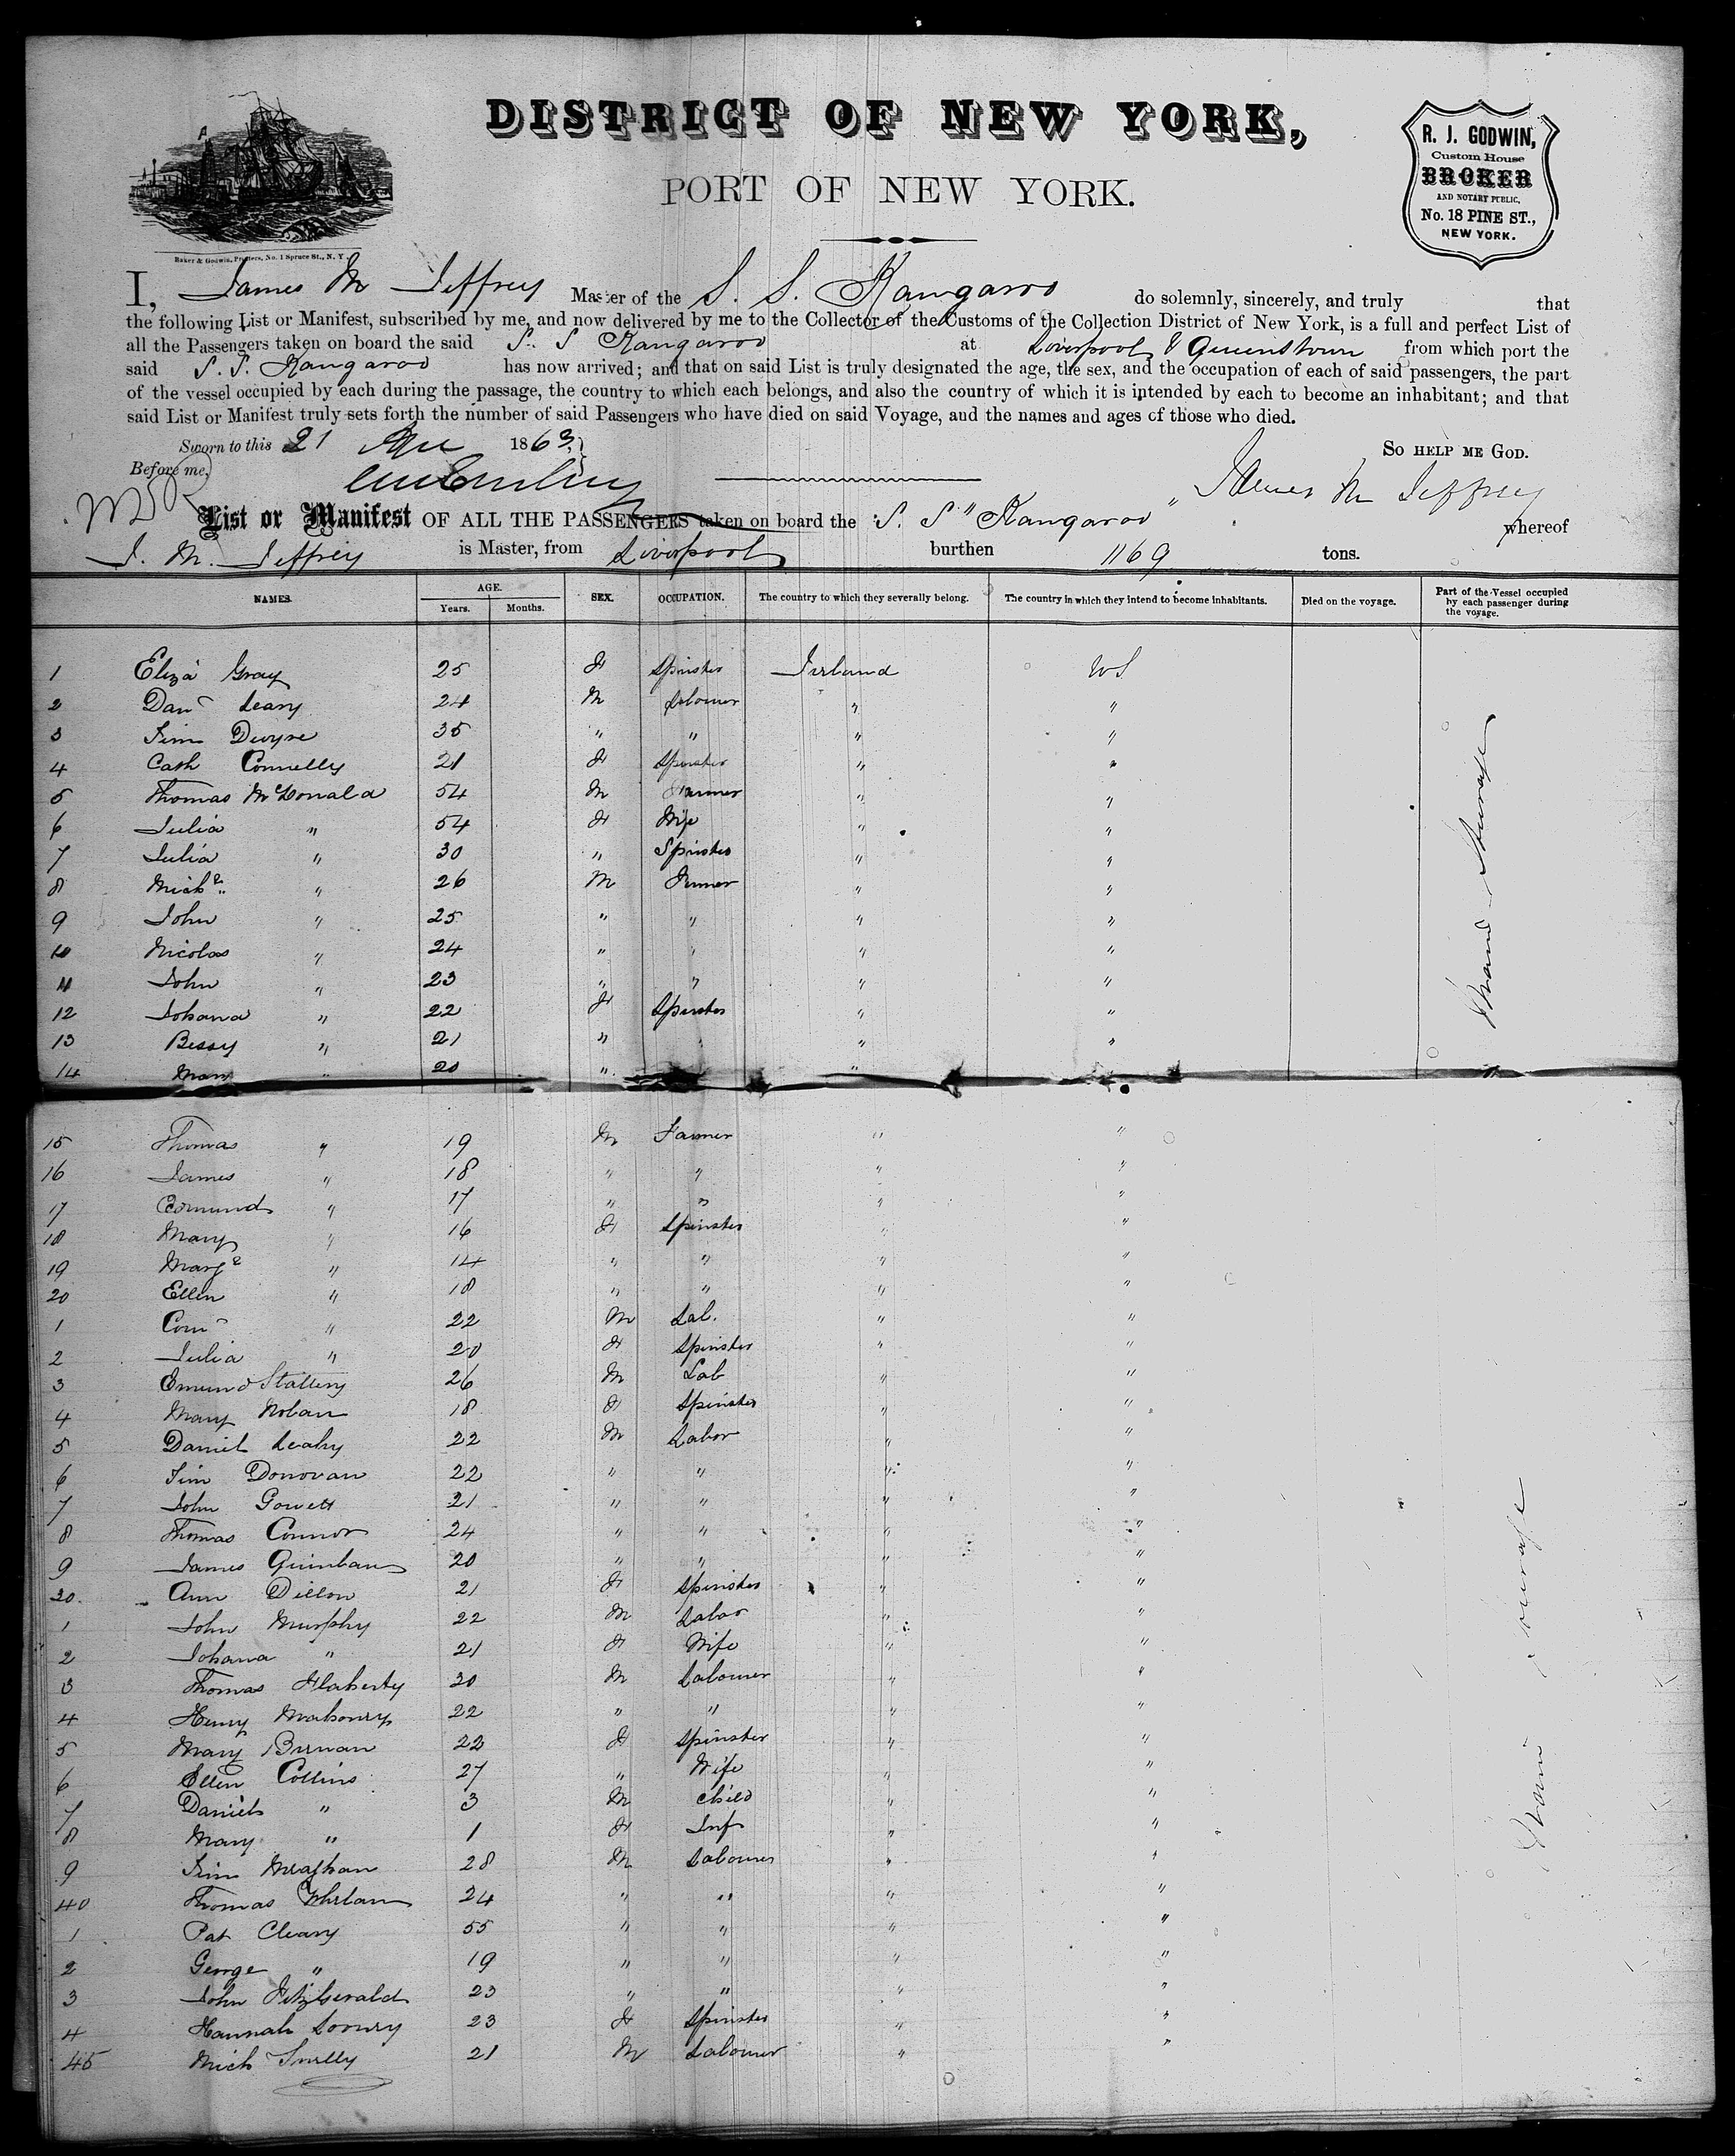 DISTRICT OF NEW YORK,
PORT OF NEW YORK.
R. J. GODWIN,
Custom House
BROKER
AND NOTARY PUBLIC,
No. 18 PINE ST.,
NEW YORK.
Baker & Godwin, Printers, No. 1 Spruce St., N. Y.
I, James M Jeffrey Master of the S. S. Kangaroo do solemnly, sincerely, and truly that
the following List or Manifest, subscribed by me, and now delivered by me to the Collector of the Customs of the Collection District of New York, is a full and perfect List of
all the Passengers taken on board the said S. S Kangaroo at Liverpool & Queenstown from which port the
said S. S. Kangaroo has now arrived; and that on said List is truly designated the age, the sex, and the occupation of each of said passengers, the part
of the vessel occupied by each during the passage, the country to which each belongs, and also the country of which it is intended by each to become an inhabitant; and that
said List or Manifest truly sets forth the number of said Passengers who have died on said Voyage, and the names and ages of those who died.
Sworn to this 21 1863
So help me God.
Before me,
James M Jeffrey
List or Manifest OF ALL THE PASSENGERS taken on board the S. S "Kangaroo" whereof
J. M. Jeffrey is Master, from Liverpool burthen 1169 tons.
NAMES. AGE. Years. Months. SEX. OCCUPATION. The country to which they severally belong. The country in which they intend to become inhabitants. Died on the voyage. Part of the Vessel occupied by each passenger during the voyage.
1 Eliza Gray 25 F Spinster Irland US
2 Dan Leary 24 M Labourer " "
3 Tim Dwyre 35 " " " "
4 Cath Connelly 21 F Spinster " "
5 Thomas McDonald 54 M Farmer " "
6 Julia " 54 F Wife " "
7 Julia " 30 " Spinster " "
8 Michl " 26 M Farmer " "
9 John " 25 " " " "
10 Nicolas " 24 " " " "
11 John " 23 " " " "
12 Johana " 22 F Spinster " "
13 Bessy " 21 " " "
14 Mary " 20 " "
15 Thomas " 19 M Farmer " "
16 James " 18 " " " "
17 Edmund " 17 " " " "
18 Mary " 16 F Spinster " "
19 Margt " 14 " " " "
20 Ellen " 18 " " " "
1 Corn " 22 M Lab. " "
2 Julia " 20 F Spinster " "
3 Emund Stattery 26 M Lab " "
4 Mary Nolan 18 F Spinster " "
5 Daniel Leahy 22 M Labor " "
6 Tim Donovan 22 " " " "
7 John Gowett 21 " " " "
8 Thomas Connor 24 " " " "
9 James Quinlan 20 " " " "
30 Ann Dillon 21 F Spinster " "
1 John Murphy 22 M Labor " "
2 Johana " 21 F Wife " "
3 Thomas Flaherty 30 M Labourer " "
4 Henry Mahonry 22 " " " "
5 Mary Brenan 22 F Spinster " "
6 Ellen Collins 27 " Wife " "
7 Daniel " 3 M Child " "
8 Mary " 1 F Inf " "
9 Tim Meaghan 28 M Labourer " "
40 Thomas Whelan 24 " " " "
1 Pat Cleary 55 " " " "
2 George " 19 " " " "
3 John Fitzgerald 23 " " " "
4 Hannah Loonry 23 F Spinster " "
45 Mich Smelly 21 M Labourer " "